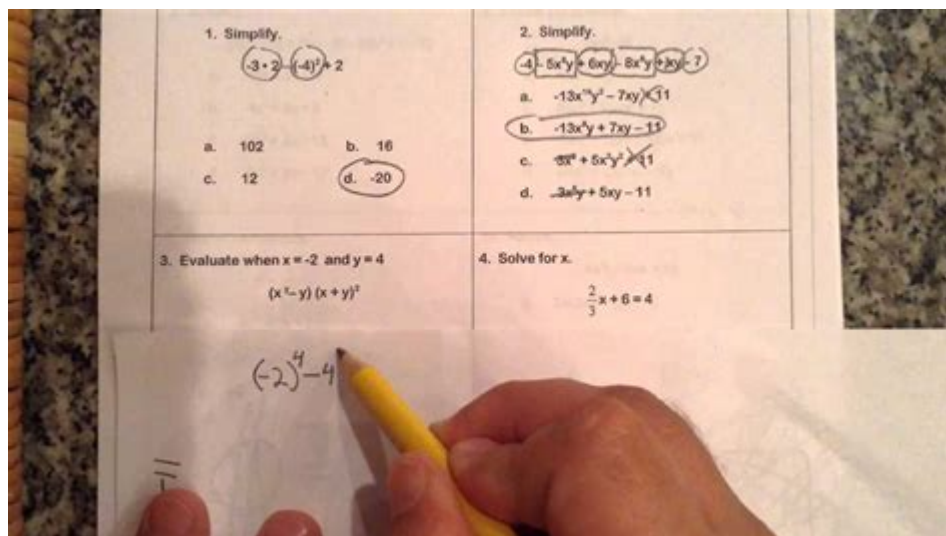 1. Simplify.
-3 • 2 - (-4)² + 2
a. 102 b. 16
c. 12 d. -20
2. Simplify.
-4 - 5x⁸y + 6xy - 8x⁸y + xy - 7
a. -13x¹⁶y² – 7xy
b. -13x⁸y + 7xy – 11
c. + 5x²y²
d. 3x⁸y + 5xy – 11
3. Evaluate when x = -2 and y = 4
(x – y) (x + y)²
4. Solve for x.
2/3 x + 6 = 4
(-2)⁴ - 4
-11